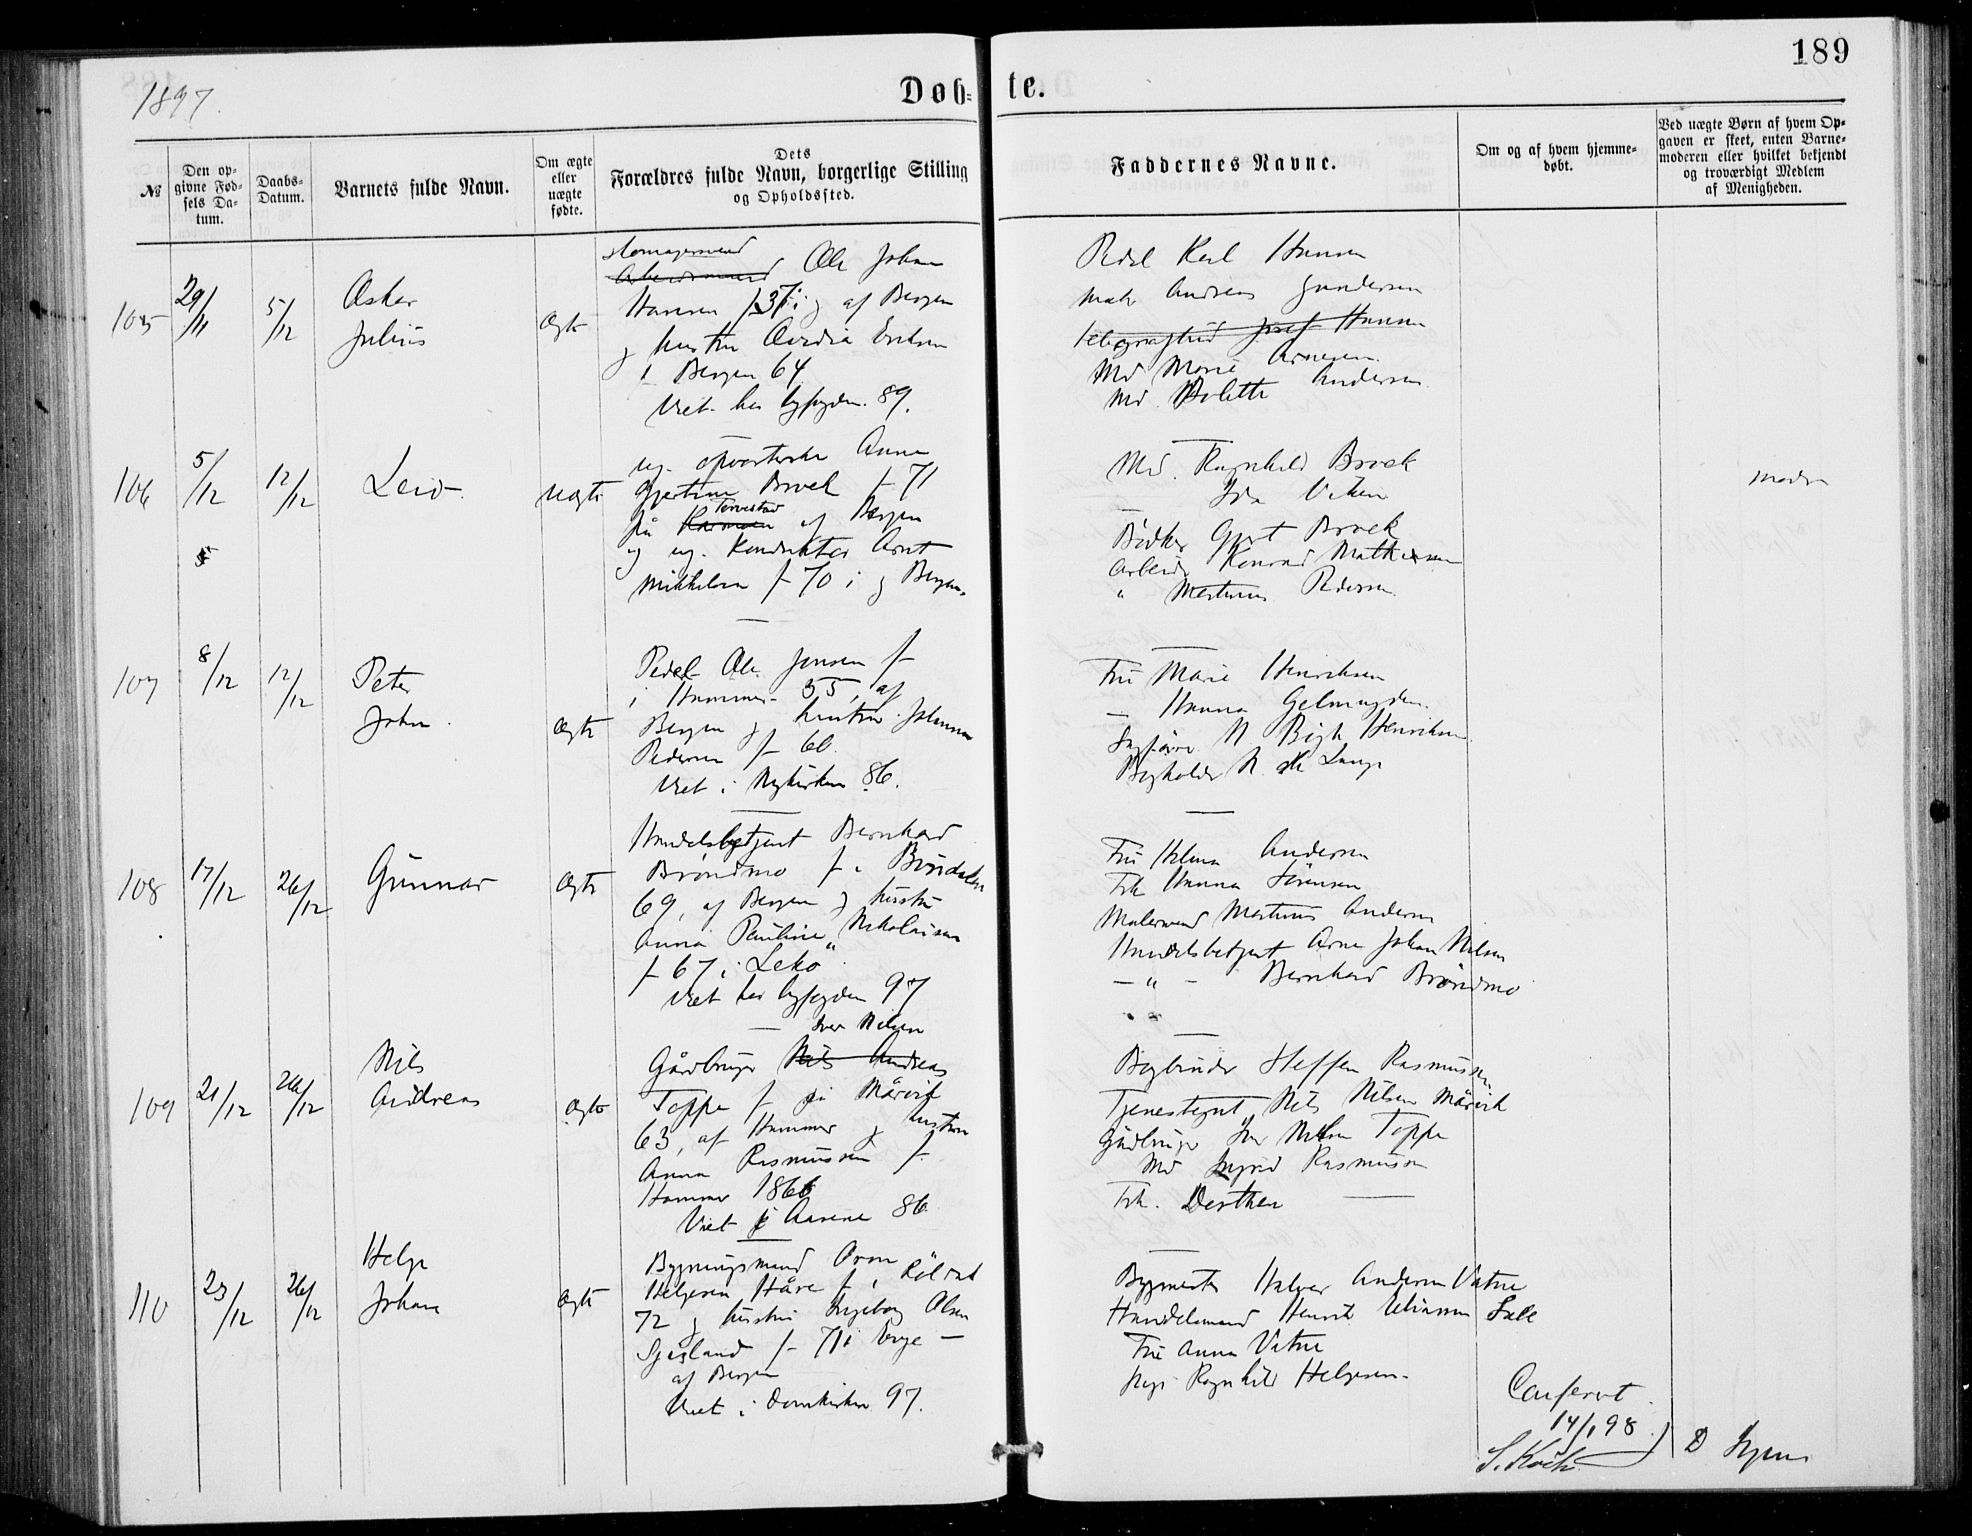 189
1897.
Døb= te.
№
Den op-
givne Fød-
sels Da-
tum.
Daabs-
Datum.
Barnets fulde Navn.
Om ægte
eller
uægte
fødte.
Dets
Forældres fulde Navn, borgerlige Stilling
og Opholdssted.
Faddernes Navne.
Om og af hvem hjemme-
døbt.
Ved uægte Børn af hvem Op-
gaven er skeet, enten Barne-
moderen eller hvilket bekjendt
og troværdigt Medlem
af Menigheden.
105
29/11
5/12
Oskar
Julius
Ægte
Arbeidsmand Ole Johan
Hansen f 37 i og af Bergen
og hustru Ovedia Eriksen
i Bergen 64
Viet her byfogden 89.
Pedel Karl Hansen
Matr Andreas Gundersen
Josef Hansen
Md Marie Arnesen
Md. Bolette Andersen
106
5/12
12/12
Leiv
Uægte
ug. opvarterske Anna
Gjertine Brock f 71
på Torvestad af Bergen
og ug. Konduktør Arnt
Mikkelsen f 70 i og Bergen.
Md. Ragnhild Brock
— Ida Viken
Bødker Gjert Brock
Arbeidr Konrad Mathiesen
" Martinus Pedersen
modr
5
107
8/12
12/12
Peter
Johan
Ægte
Pedel Ole Jensen f
i Hammer 55, af
Bergen og hustru Johanna
Pedersen f 60.
Viet i Nykirken 86.
Fru Marie Henriksen
— Hanna Gelmuyden
Sagfører N Bigh Henriksen
Bogholder N. Lange
108
17/12
26/12
Gunnar
Ægte
Handelsbetjent Bernhard
Brøndmo f i Brindalen
69, af Bergen og hustru
Anna Pauline Nikolaisen
f 67 i Leko
Viet her byfogden 97
Fru Helena Andersen
Frk Hanna Sørensen
Malersvend Martinus Andersen
Handelsbetjent Arne Johan Nilsen
— " — Bernhard Brøndmo
109
21/12
26/12
Nils
Andreas
Ægte
Iver Nilsen
Gårdbruger Nils Andreas
Toppe f på Mårvik
63, af Hammer og hustru
Anna Rasmussen f
Hammer 1866
Viet i Aasene 86
Bogbinder Steffen Rasmussen
Tjenestegut Nils Nilsen Mårvik
Gårdbruger Iver Nilsen Toppe
Md Ingrid Rasmussen
Frk. Dorthea —
110
23/12
26/12
Helge
Johan
Ægte
Bygningsmand Orm
Helgesen Håre f i Røldal
72 og hustru Ingeborg Olsen
f 71 i Evje —
af Bergen
Viet i Domkirken 97.
Bygmester Halvor Andersen Vatne
Handelsmand Henrik Eliassen Sæle
Fru Anna Vatne
Pige Ragnhild Helgesen
Confereret
14/1 98
S. Koch